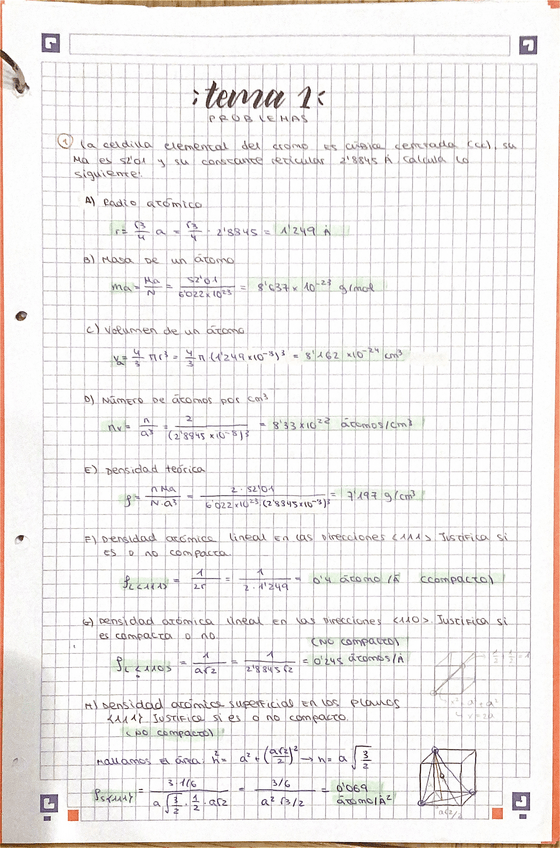 tema 1
PROBLEMAS
1 La celdilla elemental del cromo es cúbica centrada (cc), su
Ma es 52'01 y su constante reticular 2'8845 Å calcula lo
siguiente:
A) Radio atómico
r = √3/4 a = √3/4 · 2'8845 = 1'249 Å
B) Masa de un átomo
ma = Ma/N = 52'01/6'022x10²³ = 8'637x10⁻²³ g/mol
C) Volumen de un átomo
Va = 4/3 πr³ = 4/3 π (1'249x10⁻⁸)³ = 8'162 x10⁻²⁴ cm³
D) Número de átomos por cm³
nv = n/a³ = 2/(2'8845x10⁻⁸)³ = 8'33x10²² átomos/cm³
E) Densidad teórica
ρ = n Ma/N·a³ = 2·52'01/6'022x10²³·(2'8845x10⁻⁸)³ = 7'197 g/cm³
F) Densidad atómica lineal en las direcciones <111> Justifica si
es o no compacta
ρL<111> = 1/2r = 1/2·1'249 = 0'4 átomo/Å (compacto)
G) Densidad atómica lineal en las direcciones <110>. Justifica si
es compacta o no.
(NO compacto)
ρL<110> = 1/a√2 = 1/2'8845√2 = 0'245 átomos/Å
H) Densidad atómica superficial en los planos
{111} Justifica si es o no compacto.
(NO compacto)
Hallamos el área: h² = a² + (a√2/2)² → h = a √3/2
ρs{111} = 3·1/6 / a√3/2 · 1/2 · a√2 = 3/6 / a²√3/2 = 0'069
átomo/Å²